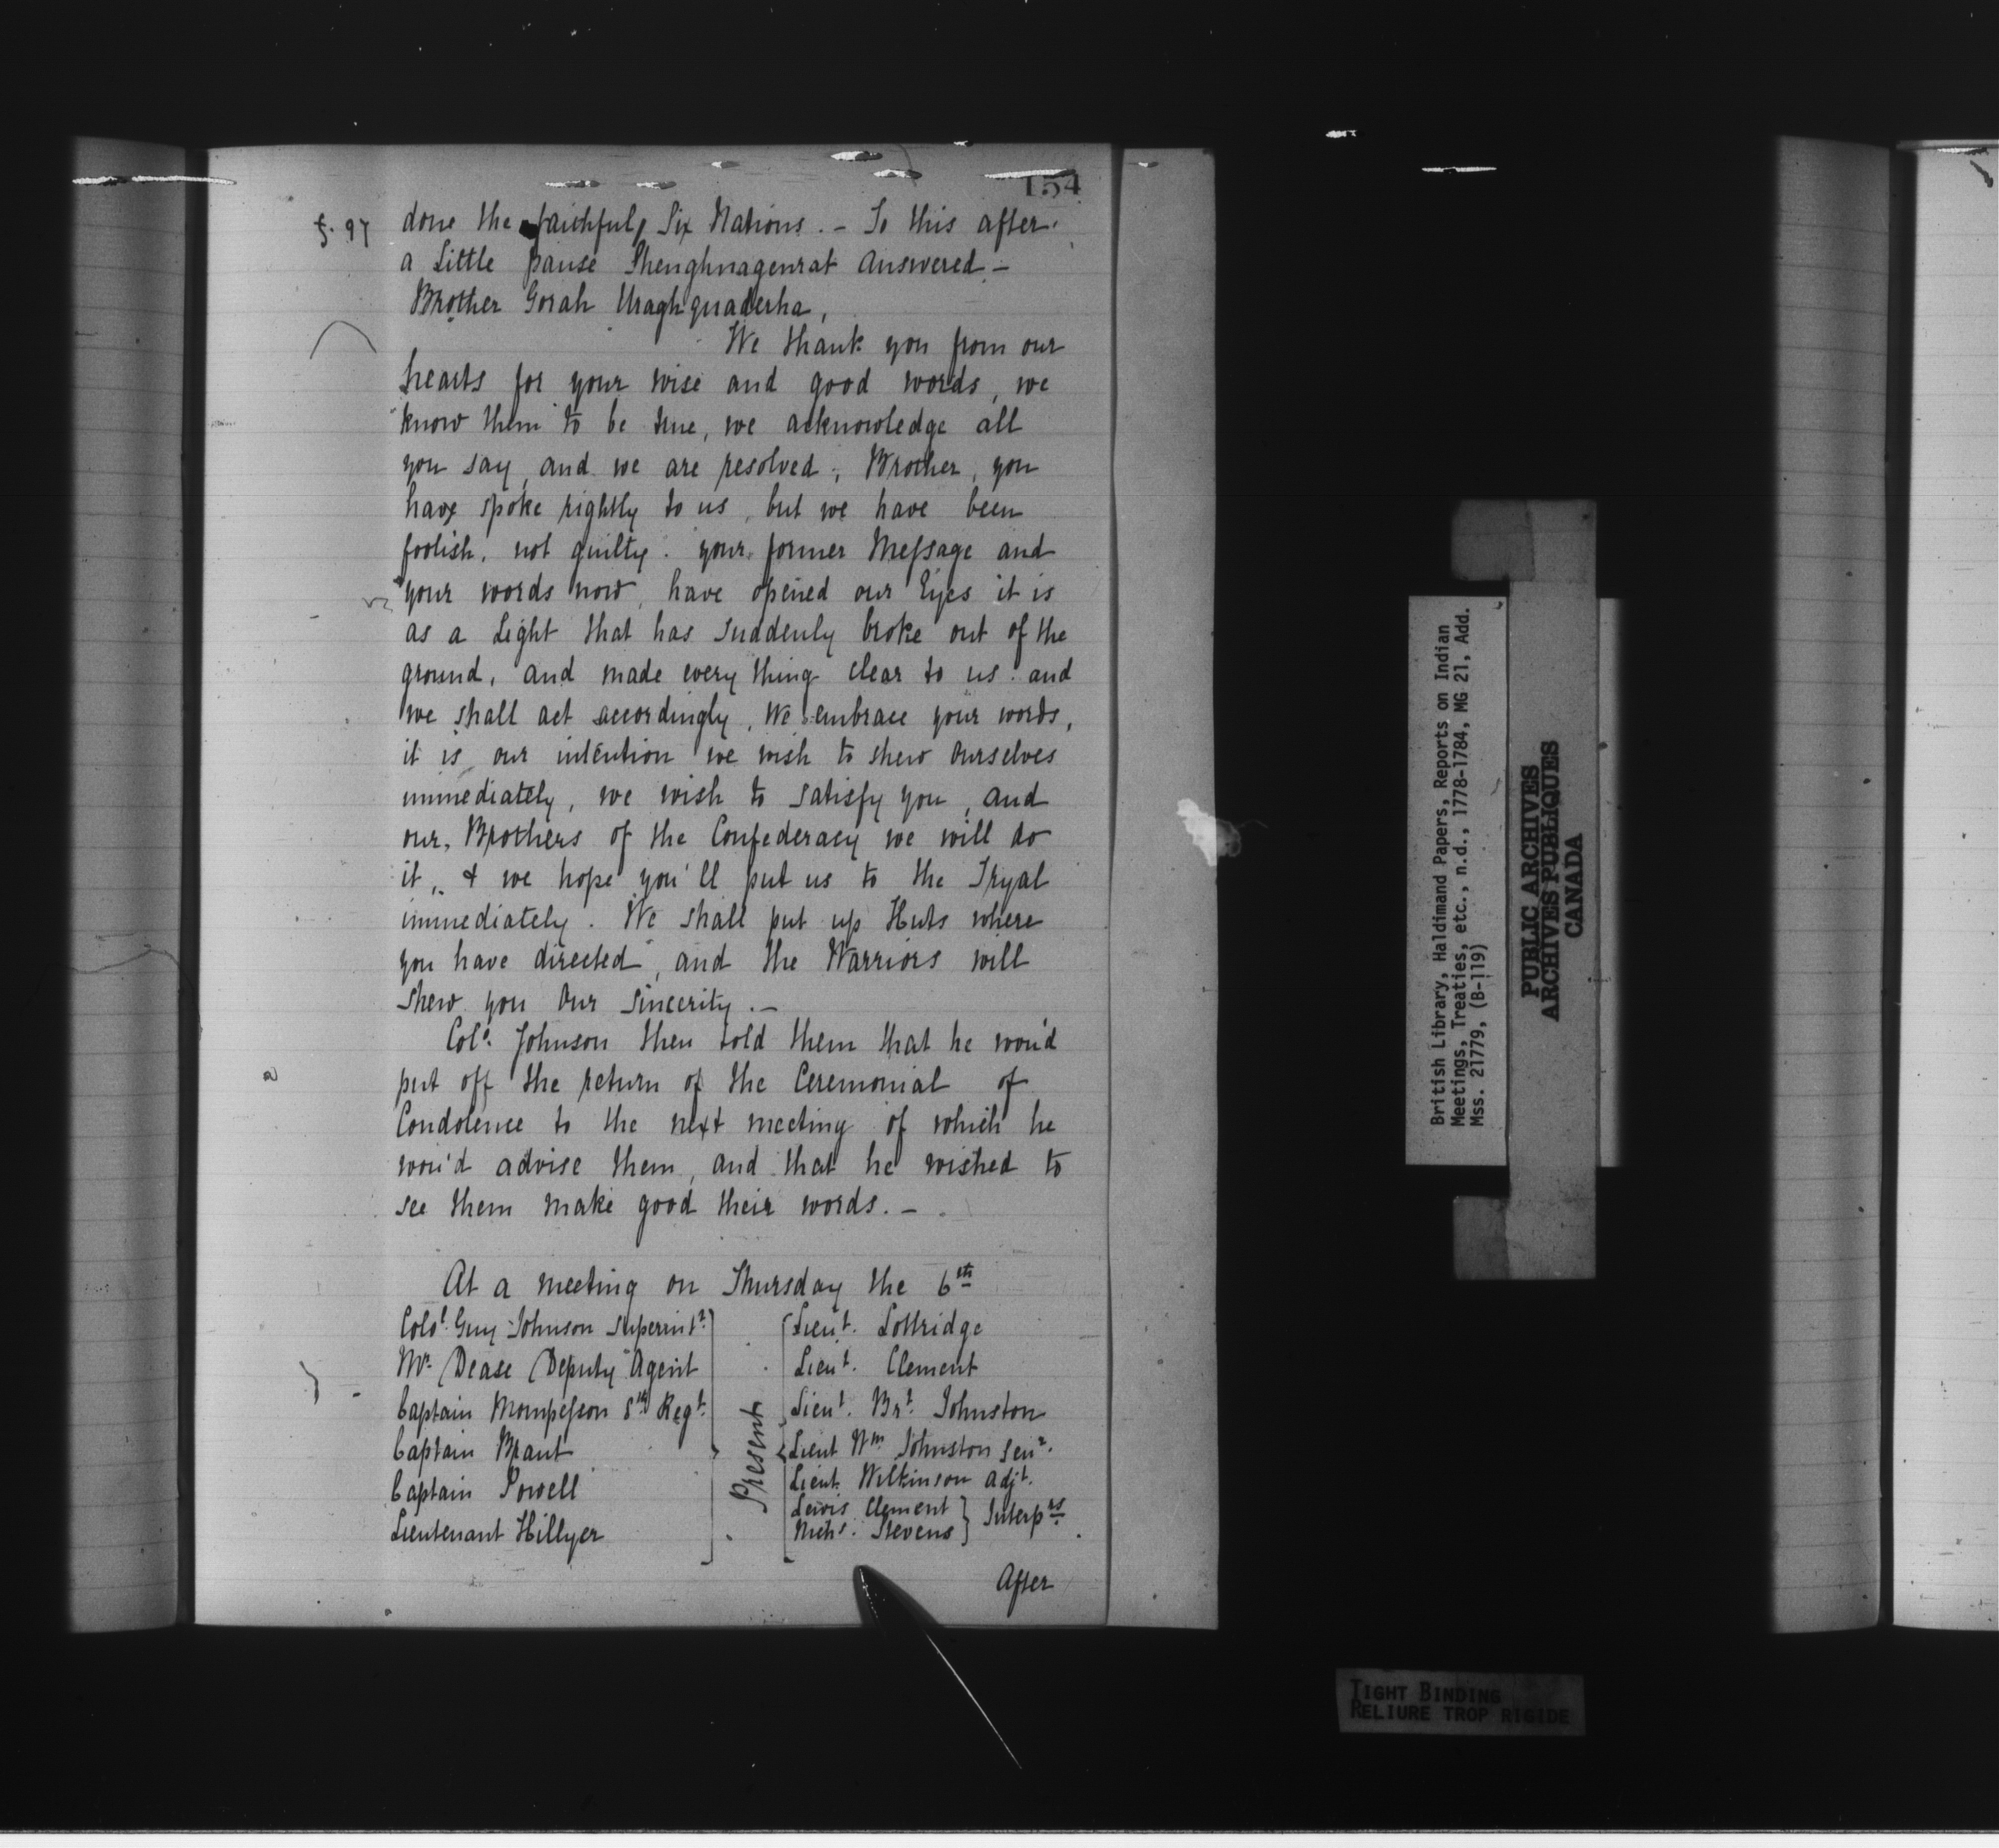 154
f. 97
done the faithful Six Nations. - To this after
a Little pause Shenghnagenrat Answered -
Brother Gorah Uraghquaderha,
We thank you from our
hearts for your wise and good words, we
know them to be true, we acknowledge all
you say, and we are resolved; Brother, you
have spoke rightly to us, but we have been
foolish, not guilty. your former Message and
your words now, have opened our Eyes it is
as a Light that has suddenly broke out of the
ground, and made every thing clear to us. and
we shall act accordingly, We embrace your words,
it is our intention we wish to shew Ourselves
immediately, we wish to satisfy you, and
our Brothers of the Confederacy we will do
it, & we hope you'll put us to the Tryal
immediately. We shall put up Huts where
you have directed, and the Warriors will
shew you Our Sincerity. -
Colo. Johnson then told them that he wou'd
put off the return of the Ceremonial of
Condolence to the next meeting of which he
wou'd advise them, and that he wished to
see them make good their words. -
At a meeting on Thursday the 6th
Colol. Guy Johnson Superintt.
Mr. Dease Deputy Agent
Captain Mompesson 8th Regt.
Captain Brant
Captain Powell
Lieutenant Hillyer
Present
Lieut. Lottridge
Lieut. Clement
Lieut. Brt. Johnston
Lieut Wm Johnston Senr.
Lieut. Wilkinson Adjt.
Lewis Clement
Nichs. Stevens
Interprs
After
British Library, Haldimand Papers, Reports on Indian
Meetings, Treaties, etc., n.d., 1778-1784, MG 21, Add.
Mss. 21779, (B-119)
PUBLIC ARCHIVES
ARCHIVES PUBLIQUES
CANADA
TIGHT BINDING
RELIURE TROP RIGIDE